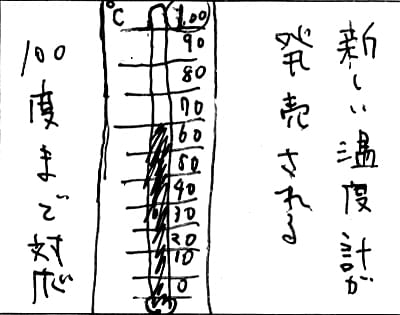 新しい温度計が
発売される
℃
100
90
80
70
60
50
40
30
20
10
0
100度まで対応